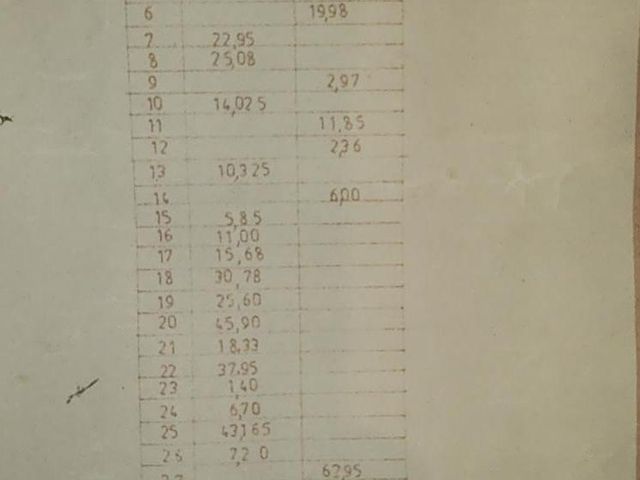 6 19,98
7 22,95
8 25,08
9 2,97
10 14,025
11 11,85
12 2,36
13 10,325
14 6,00
15 5,85
16 11,00
17 15,68
18 30,78
19 25,60
20 45,90
21 18,33
22 37,95
23 1,40
24 6,70
25 43,165
26 7,20
62,95